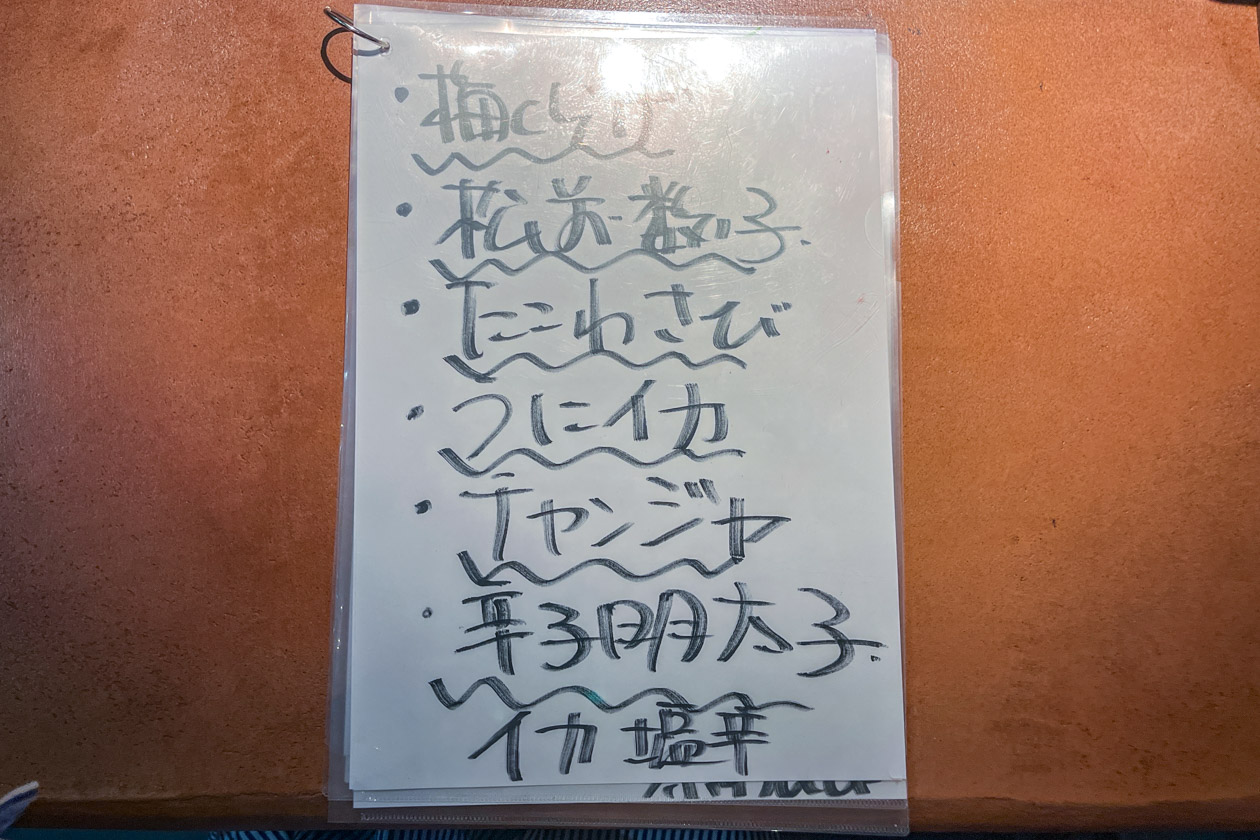 ・梅くらげ
・松前数子.
・たこわさび
・うにイカ
・チャンジャ
・辛子明太子.
イカ塩辛